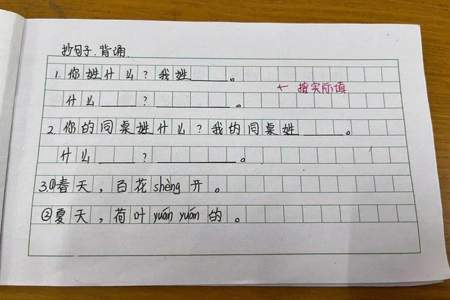 抄句子.背诵.
1.你姓什么?我姓____。
什么____?____。
← 按实际填
2.你的同桌姓什么?我的同桌姓____。
什么____?____。
3.①春天,百花shèng开。
②夏天,荷叶yuán yuán的。